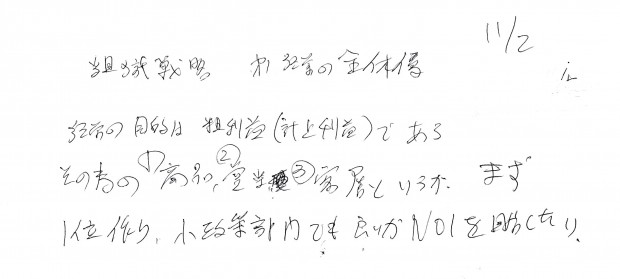 11/2
組織戦略 経営の全体像
経営の目的は粗利益(計上利益)である
その為の①商品、②営業③客層というが、まず
1位作り、小 部門でも良いがNO1を目指したい。